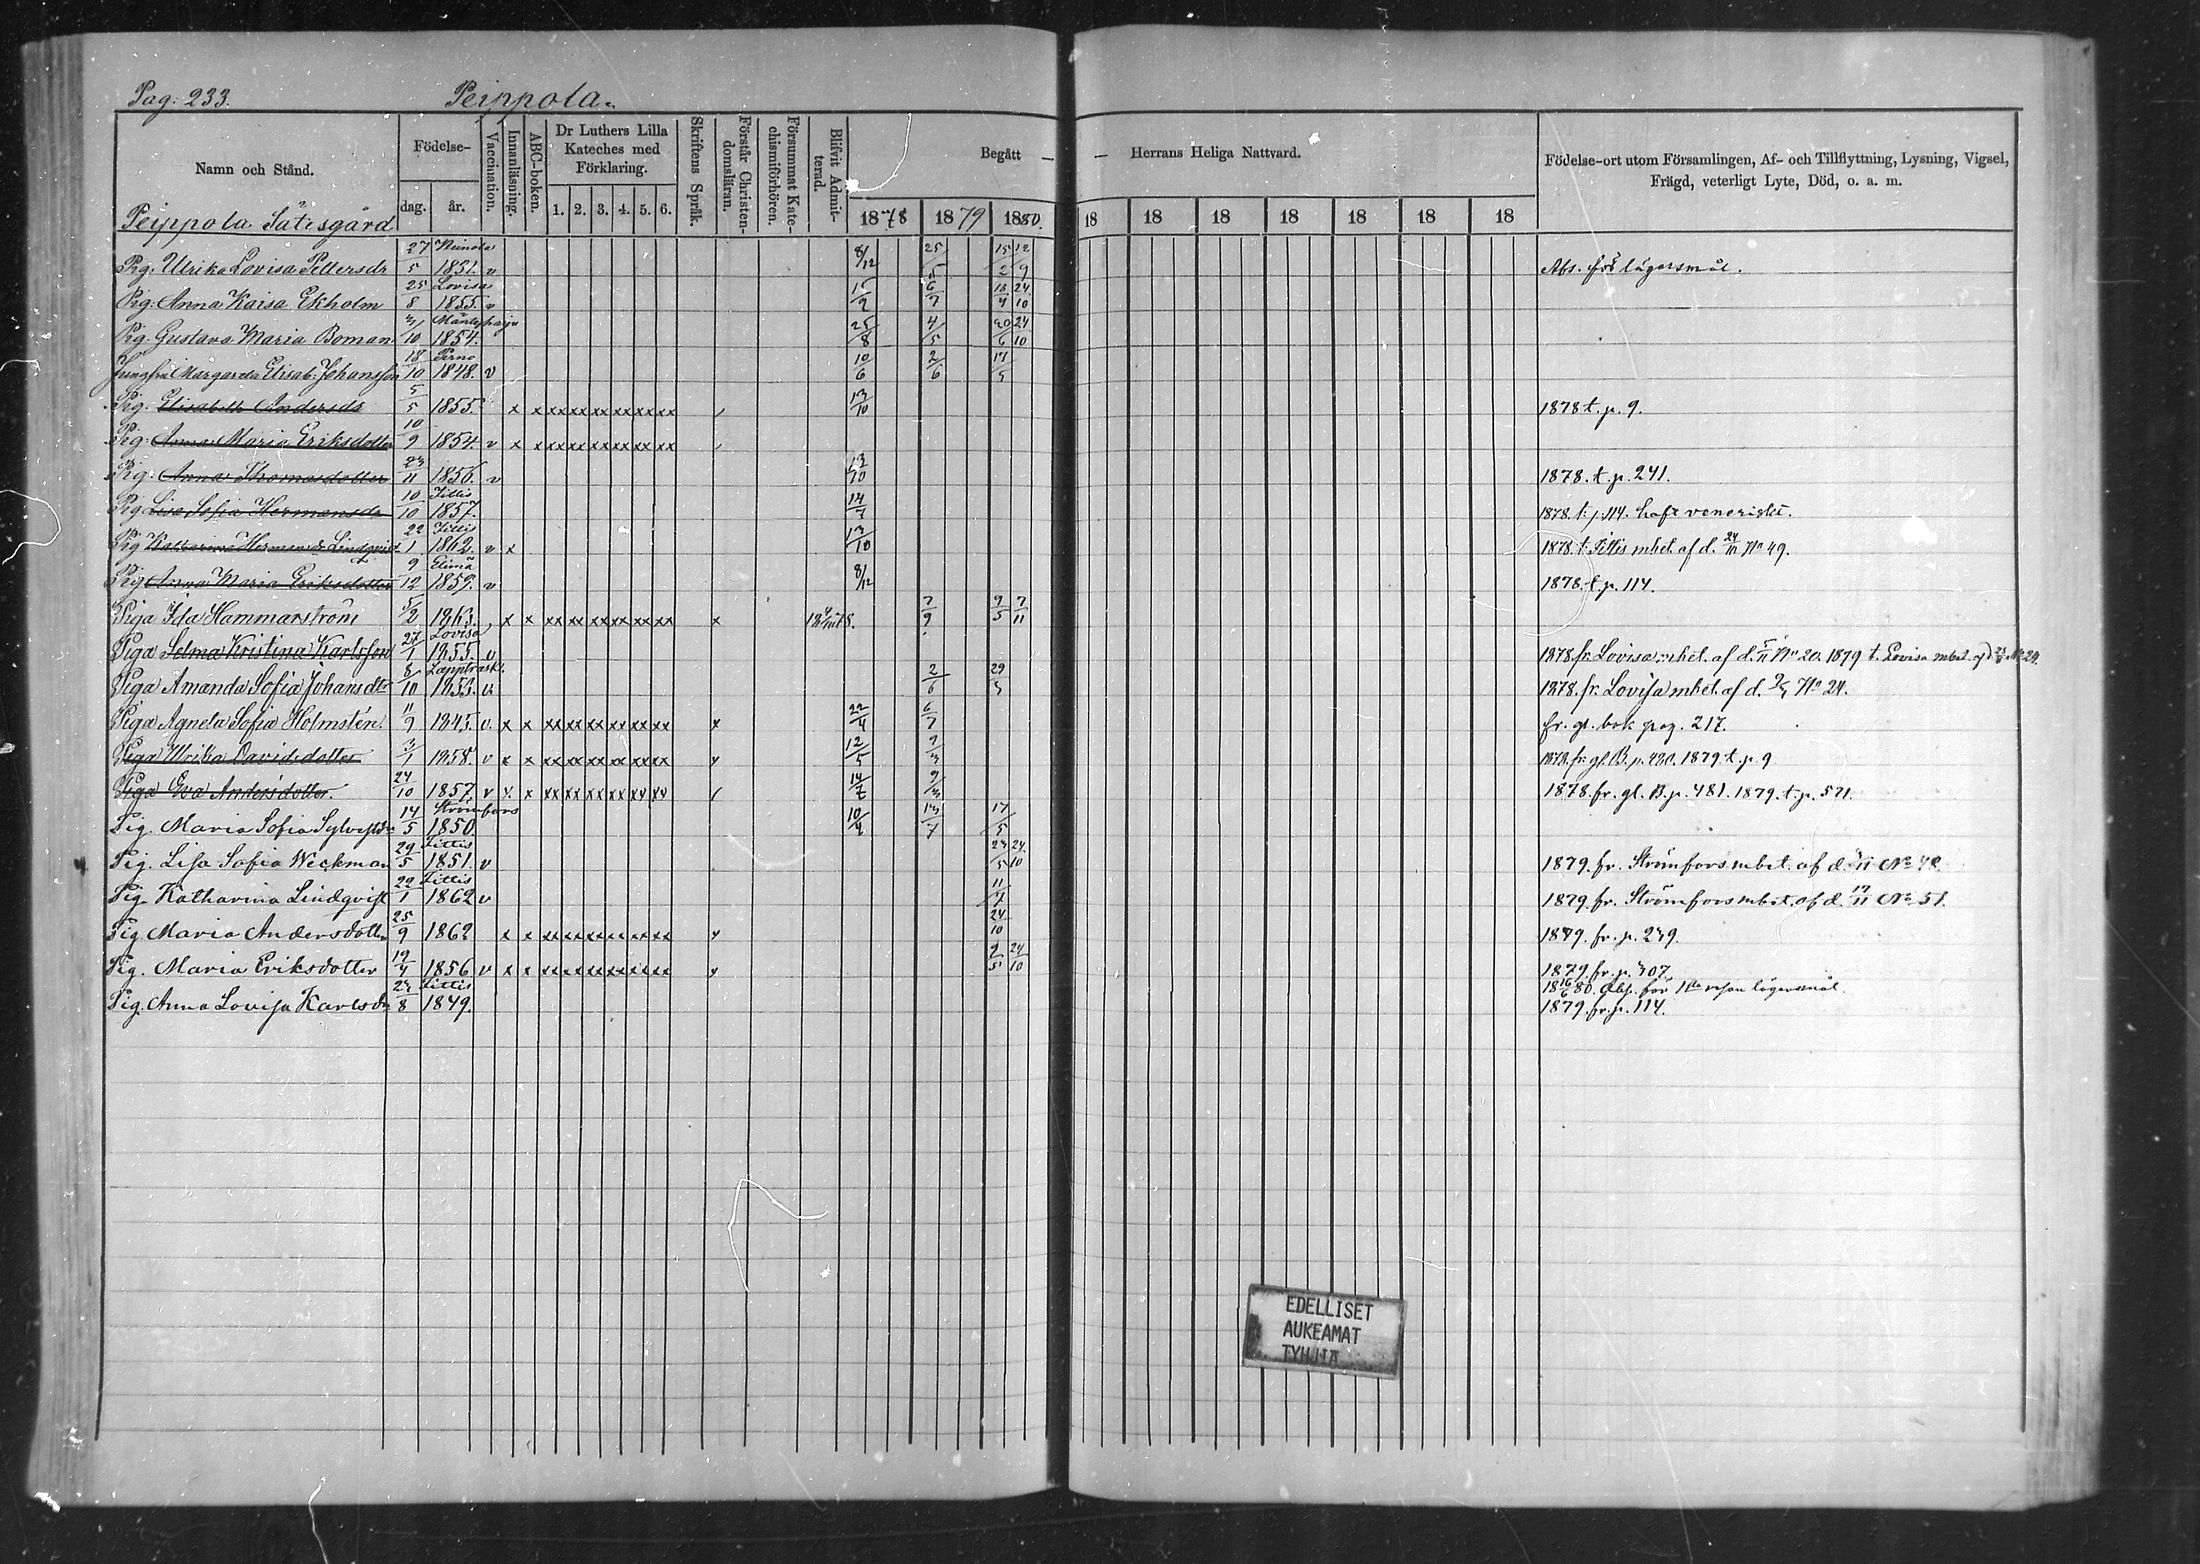 Pag: 233.
Peippola.
Namn och Stånd.
Födelse-
dag.
år.
Vaccination.
Innanläsning.
ABC-boken.
Dr Luthers Lilla
Kateches med
Förklaring.
1. 2. 3. 4. 5. 6.
Skriftens Språk.
Förstår Christen-
domsläran.
Försummat Kate-
chismiförhören.
Blifvit Admit-
terad.
Begått — — Herrans Heliga Nattvard.
1878 1879 1880. 18 18 18 18 18 18 18
Födelse-ort utom Församlingen, Af- och Tillflyttning, Lysning, Vigsel,
Frägd, veterligt Lyte, Död, o. a. m.
Peippola Sätesgård
Pig. Ulrika Lovisa Pettersdr 27/5 1851. v 8/12 25/5 15/2 12/9 Abs. för lägersmål.
Pig. Anna Kaisa Ekholm 25/8 Lovisa 1855. v 6/7 24/10
Pig. Gustava Maria Boman 1854. 25/8 4/5 30/6 24/10
Jungfru Margareta Elisab. Johansson 18/10 Perno 1848. v 10/6 2/6 17/5
Pig. Elisabeth Andersdr 5/5 1855. x x xx xx xx xx xx xx 13/10 1878 t. p. 9.
Pig. Anna Maria Eriksdotter 10/9 1854. v x x xx xx xx xx xx xx
Pig. Anna Thomasdotter 23/11 1856. v 13/10 1878. t. p. 241.
Pig Lisa Sofia Hermansdr 10/10 Fittis 1857. 1878. t. p. 114. haft venerisk.
Pig Katharina Hermansdr Lindqvist 22/1 Fittis 1862. v x 13/10 1878. t. Fittis mbet. af d. 24/10 No 49.
Pig Anna Maria Eriksdotter 9/12 Elimä 1859. v 8/12 1878. t. p. 114.
Piga Ida Hammarström 5/2 1863. x x xx xx xx xx xx xx x 7/9 9/5 7/11
Piga Selma Kristina Karlsson 27/1 Lovisa 1855. v 1878. fr. Lovisa mbet. af d. 5/11 No 20. 1879 t. Lovisa mbet.
Piga Amanda Sofia Johansdtr 8/10 Lapptrask. 1853. v. 2/6 29/5 1878. fr. Lovisa mbet. af d. No 24.
Piga Agneta Sofia Holmstén. 11/9 1845. v. x x xx xx xx xx xx xx x 22/4 6/7 fr. gl. bok pag. 217.
Piga Ulrika Davidsdotter 3/1 1858. v x x xx xx xx xx xx xx 12/5 9/3 1878. fr. gl. B. p. 1879 t. p. 9
Piga Eva Andersdotter. 24/10 1857. v x x xx xx xx xx xx xx 14/7 9/3 1878. fr. gl. B. p. 481. 1879. t. p. 571.
Pig. Maria Sofia 14/5 Strömfors 1850. 10/4 13/7 17/5
Pig. Lisa Sofia Weckman 29/5 Fittis 1851. v 23/5 24/10 1879. fr. Strömfors mbet. af d.
Pig. Katharina Lindqvist 22/1 Fittis 1862 v 11/7 1879. fr. Strömfors mbet. af d. 17/11 No 51.
Pig. Maria Andersdotter 25/9 1862 x x xx xx xx xx xx xx 24/10 1879. fr. p. 239.
Pig. Maria Eriksdotter 1856 v x x xx xx xx xx xx xx 9/5 24/10 1879. fr. p. 307.
18 16/6 80. Abs. för 1sta resan lägersmål.
Pig. Anna Lovisa Karlsdr 23/8 Fittis 1849. 1879. fr. p. 114.
EDELLISET
AUKEAMAT
TYHJIÄ